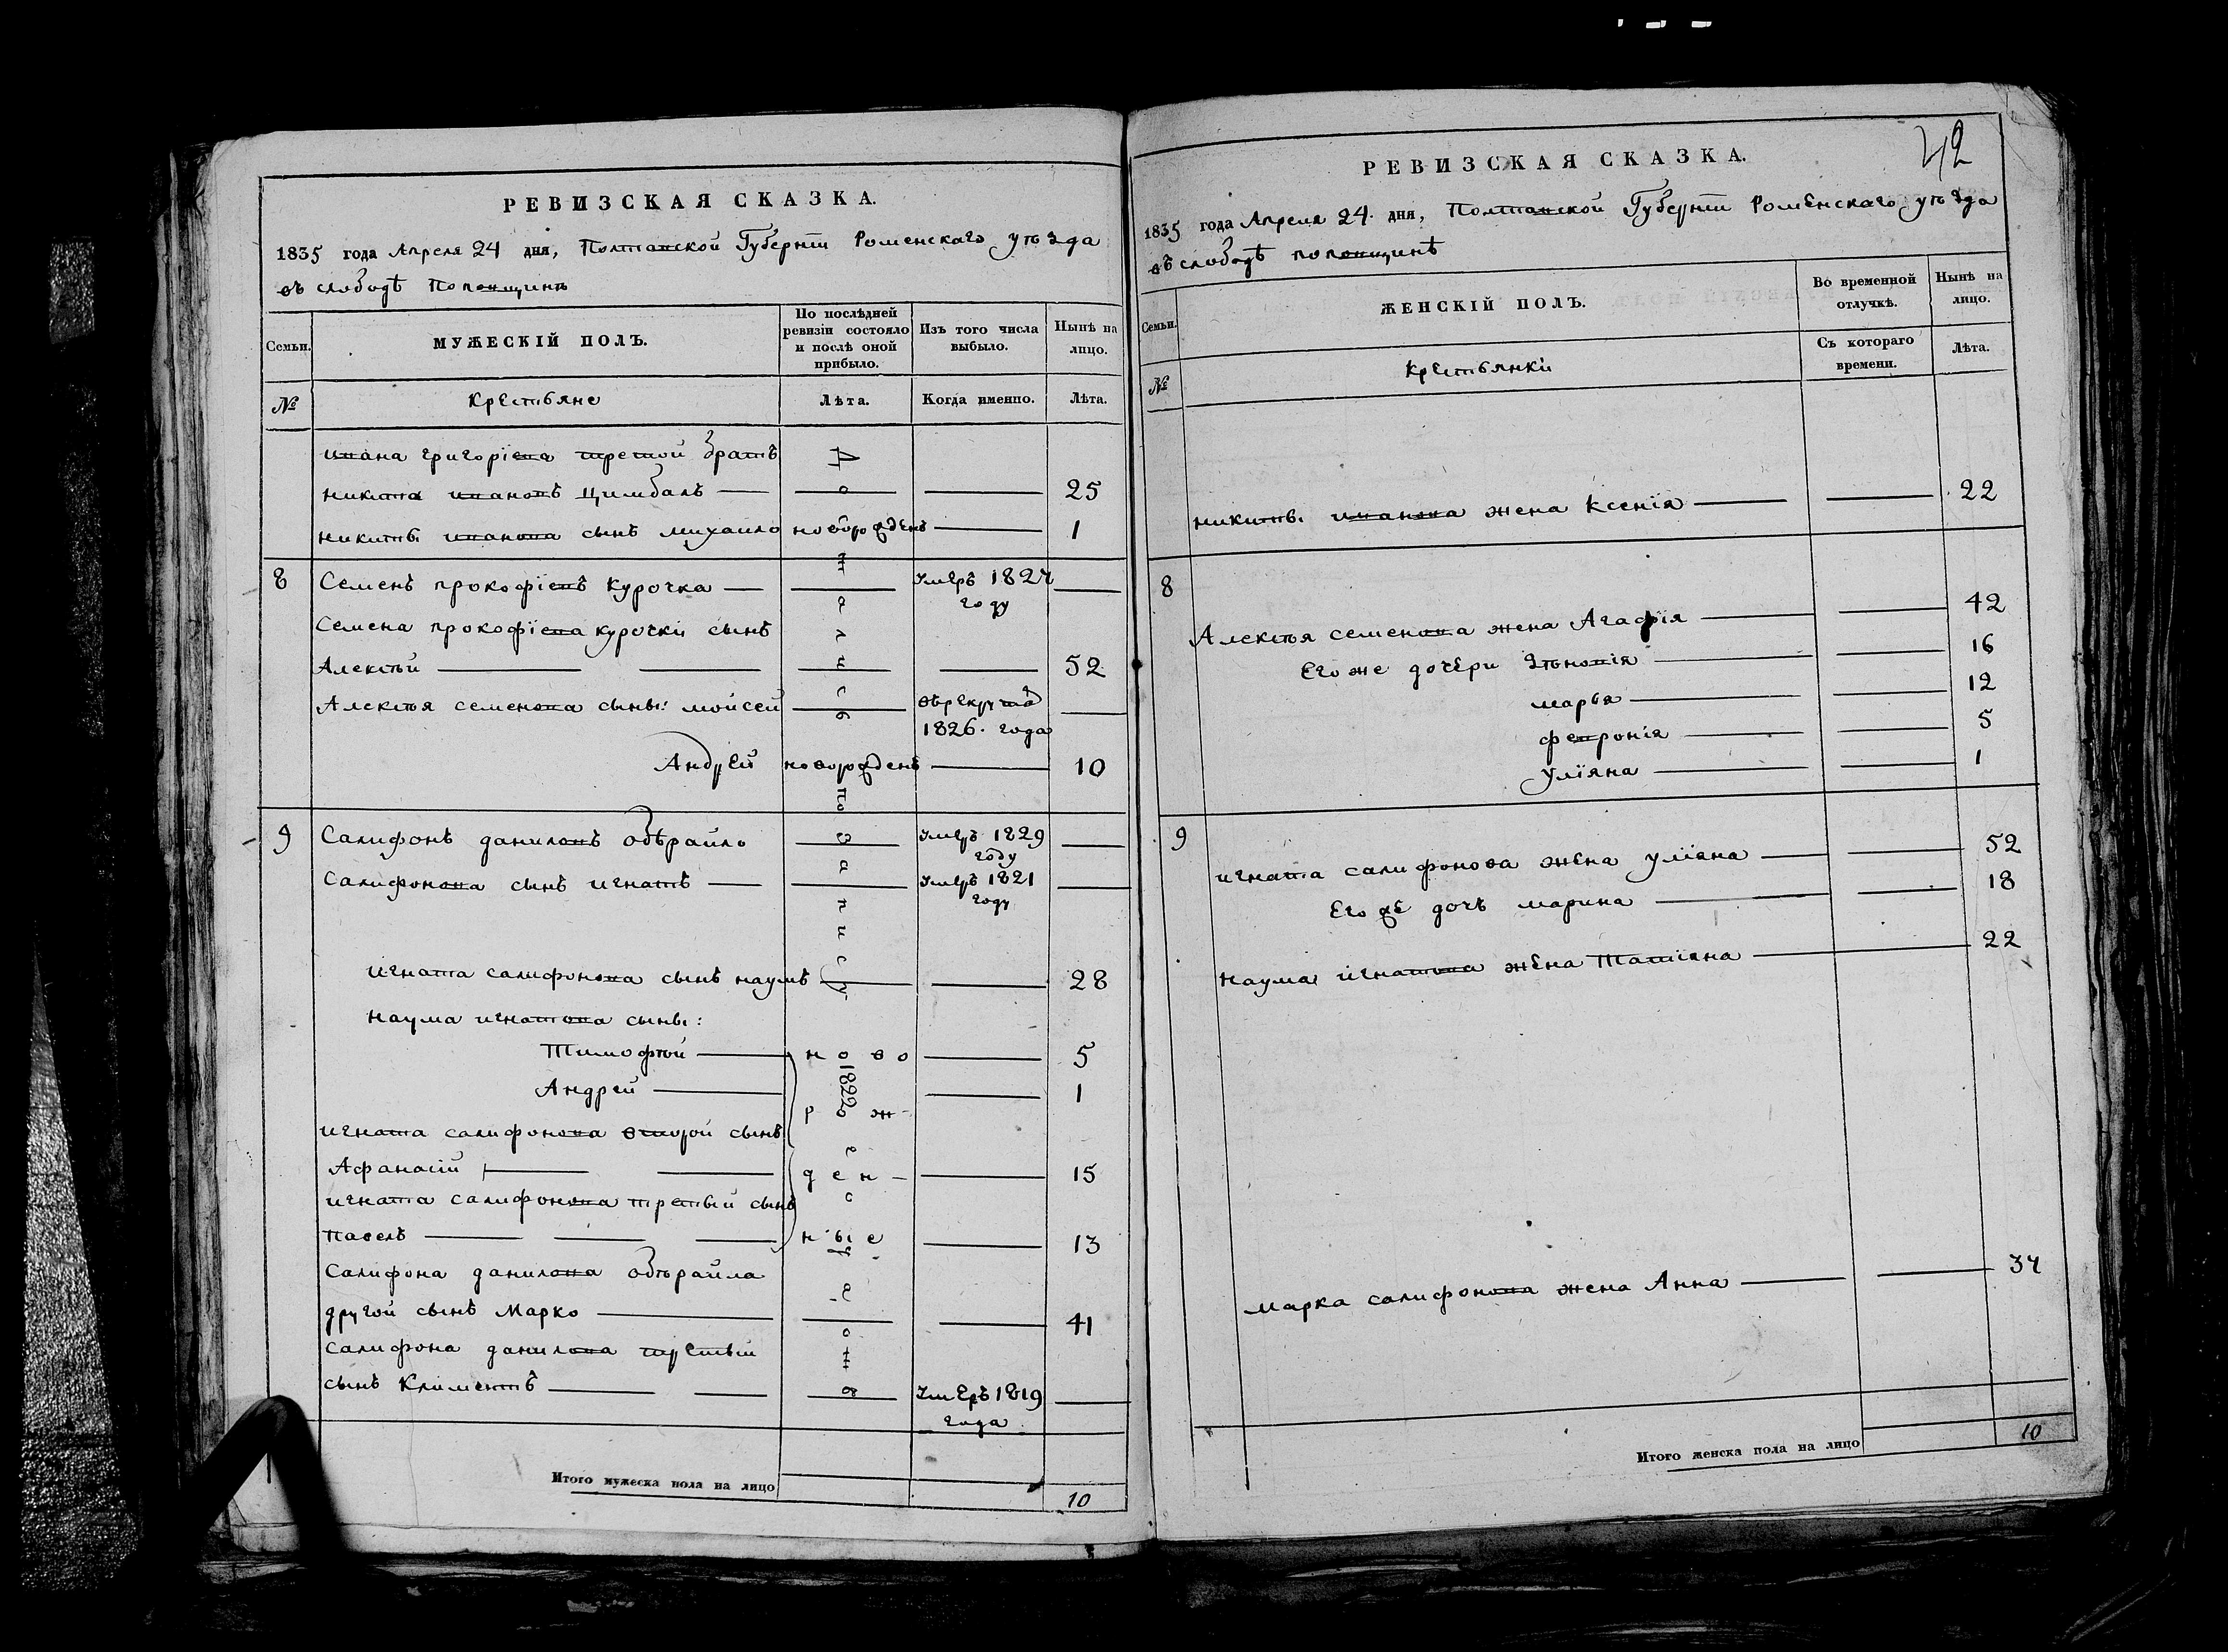 РЕВИЗСКАЯ СКАЗКА.
1835 года Апреля 24 дня, Полтавской Губернїи Роменскаго уѣзда
въ слободѣ Поповщинѣ
Семьи.
МУЖЕСКІЙ ПОЛЪ.
По послѣдней ревизіи состояло и послѣ оной прибыло.
Изъ того числа выбыло.
Нынѣ на лицо.
№
Крестьяне
Лѣта.
Когда именно.
Лѣта.
ивана григорїева третой братъ
никита ивановъ Цимбалъ 25
никиты иванова сынъ михайло новорожденъ 1
8 Семенъ прокофїевъ Курочка умеръ 1827 году
Семена прокофїева курочки сынъ
Алексѣй 52
Алексѣя семенова сыны: мойсей 1826. года
Андрей новорожденъ 10
9 Салифонъ даниловъ обѣрайло умеръ 1829 году
Салифонова сынъ игнатъ умеръ 1821 году
игната салифонова сынъ наумъ 28
наума игнатова сыны:
Тимофѣй ново 5
Андрей рож- 1
1822
игната салифонова второй сынъ
Афанасїй ден- 15
игната салифонова третьій сынъ
Павелъ ные 13
Салифона данилова обѣрайла
другой сынъ Марко 41
Салифона данилова третьій
сынъ Климентъ умеръ 1819 года
Итого мужеска пола на лицо 10
42
РЕВИЗСКАЯ СКАЗКА.
1835 года Апреля 24. дня, Полтавской Губернїи Роменскаго уѣзда
въ слободѣ поповщинѣ
Семьи.
ЖЕНСКІЙ ПОЛЪ.
Во временной отлучкѣ.
Нынѣ на лицо.
№
Крестьянки
Съ котораго времени.
Лѣта.
никиты иванова жена Ксенїя 22
8
Алексѣя семенова жена Агафїя 42
Его же дочери Зѣновїя 16
марья 12
февронїя 5
улїяна 1
9
игната салифонова жена улїяна 52
Его же дочь марина 18
наума игнатова жена Татїяна 22
марка салифонова жена Анна 37
Итого женска пола на лицо 10